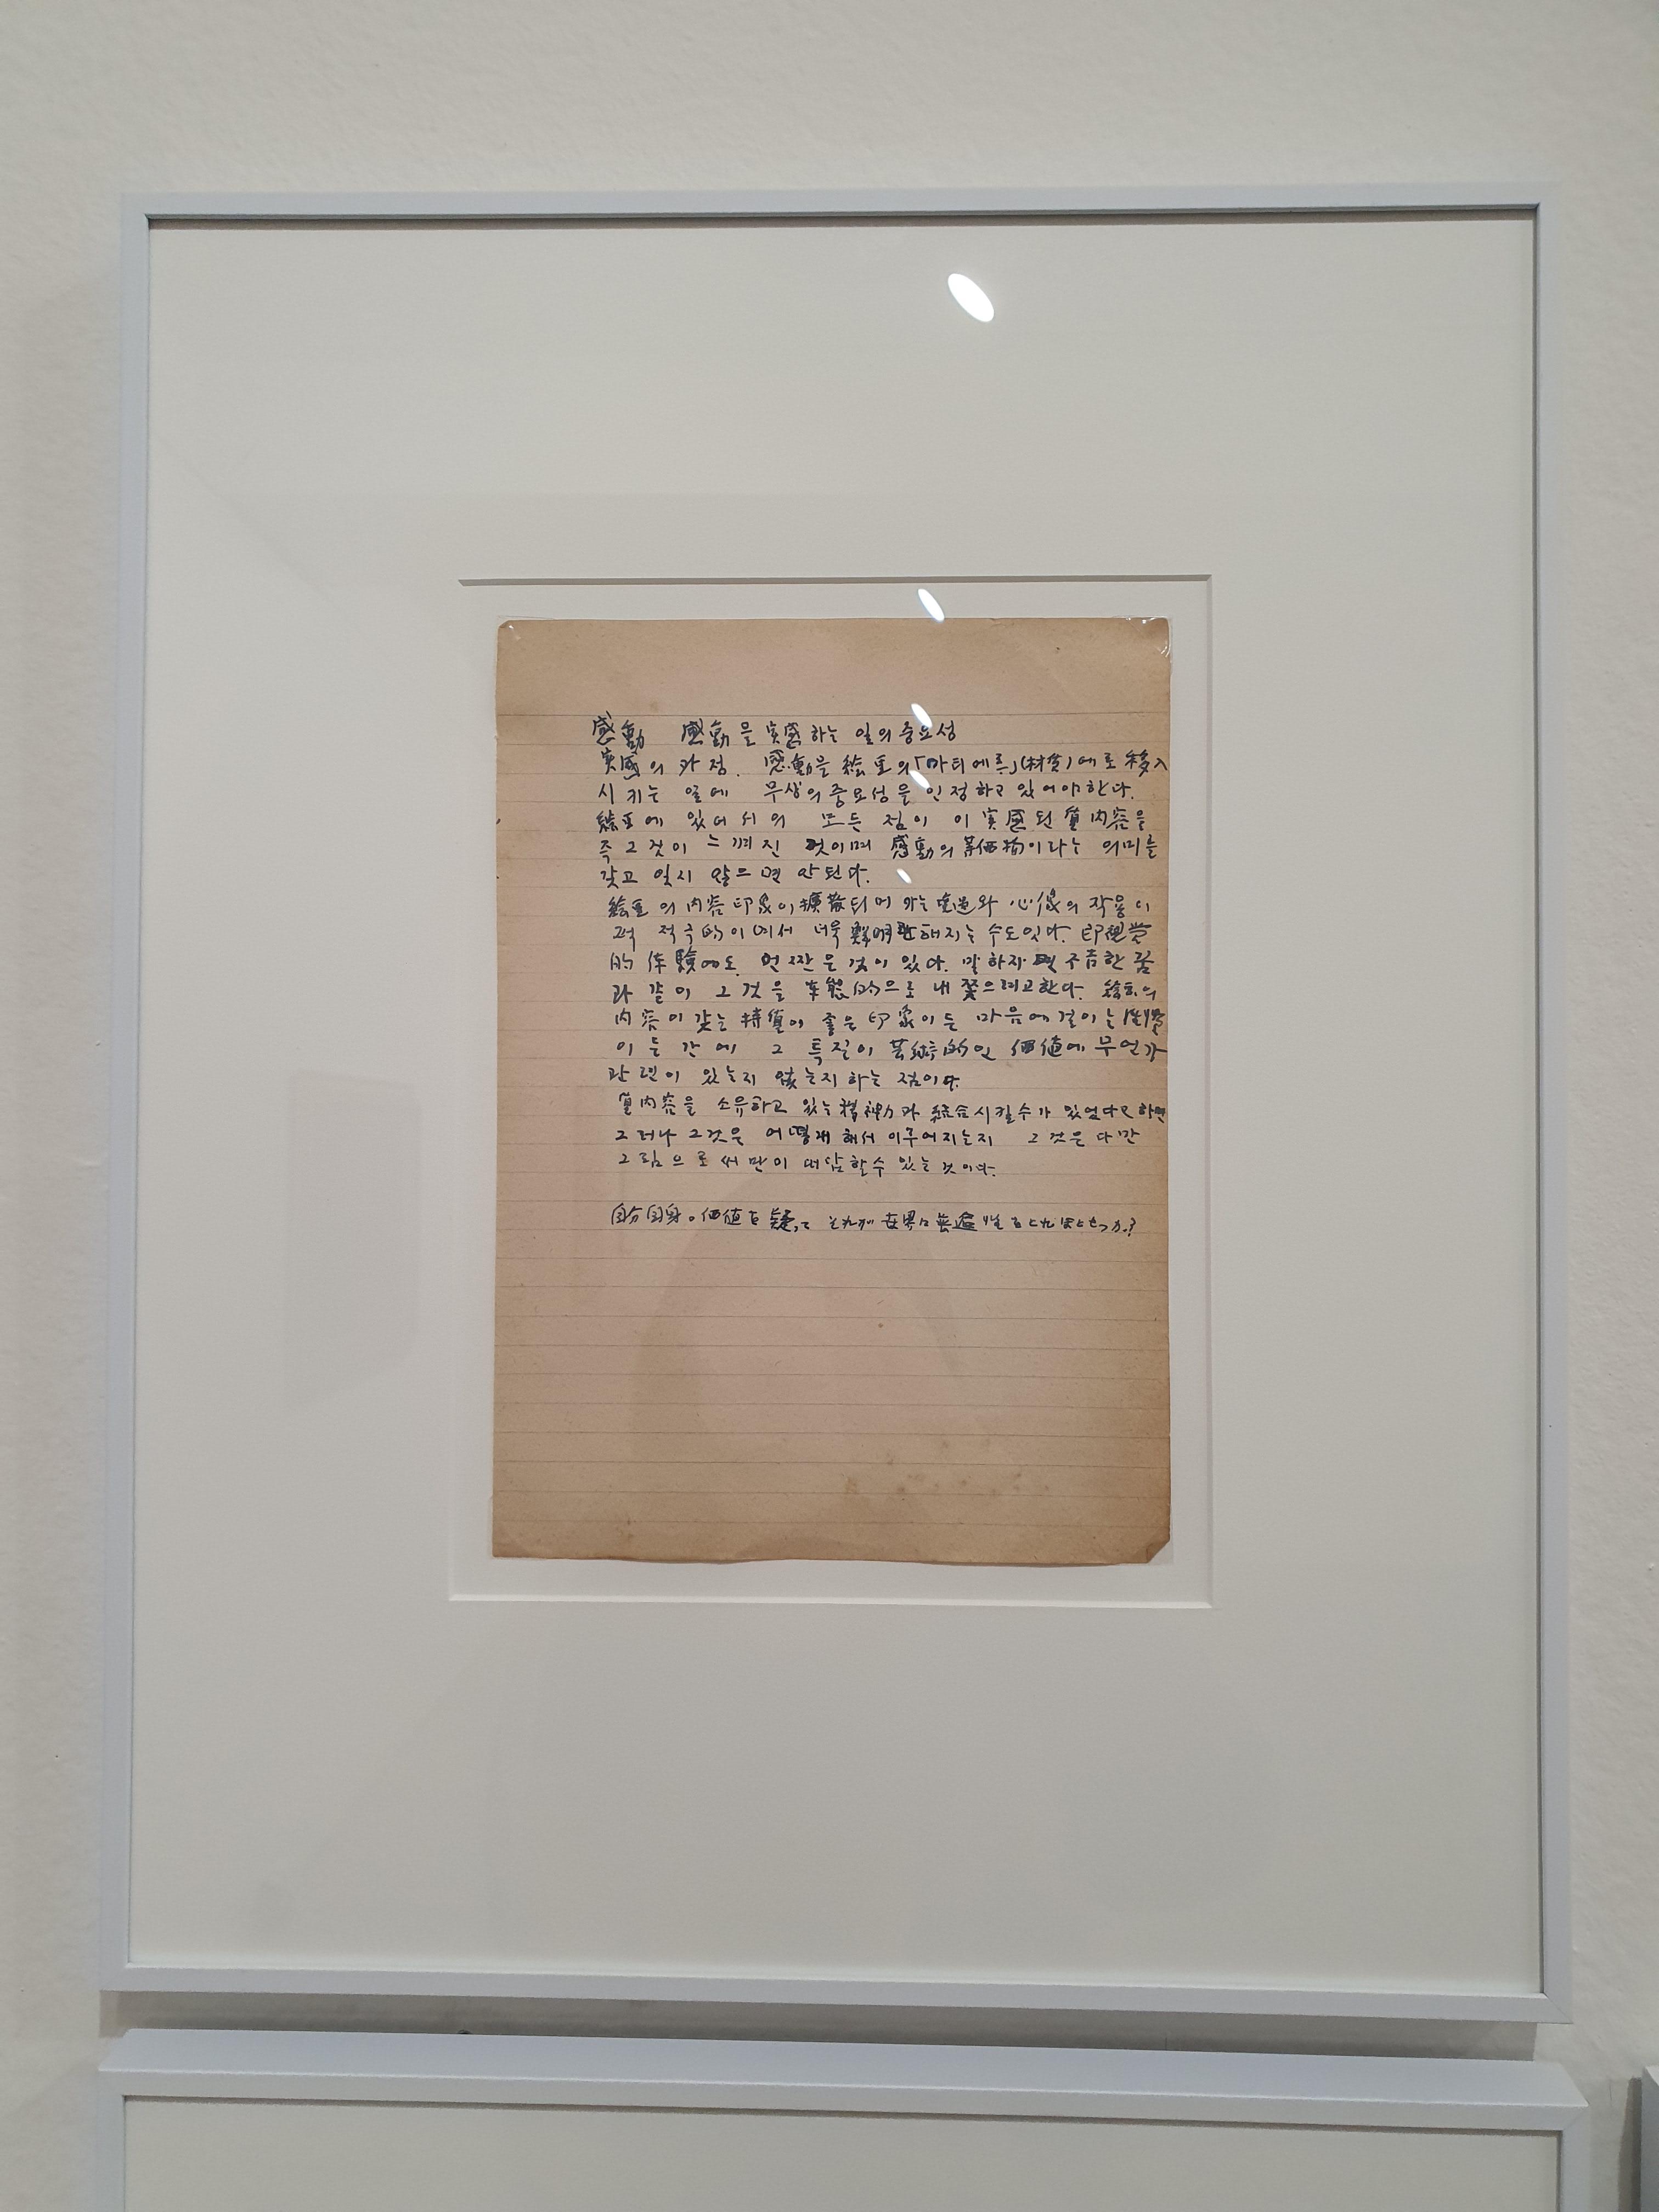 感動 感動을 実感하는 일의 중요성
実感의 과정. 感動을 絵画의「마티에르」(材質)에로 移入
시키는 일에 무상의 중요성을 인정하고 있어야한다.
絵画에 있어서의 모든 점이 이 実感된 質内容을
즉 그것이 느껴진 것이며 感動의 等価物이라는 의미를
갖고 있지 않으면 안된다.
絵画의 内容 印象이 擴散되어 가는 와 心像의 작용이
적극的이여서 더욱 해지는 수도있다. 即視覚
的 体験에도 언짢은 것이 있다. 말하자면 不吉한 꿈
과 같이 그것을 本能的으로 내쫓으려고한다. 絵画의
内容이 갖는 特質이 좋은 印象이든 마음에 걸이는
이든 간에 그 특질이 芸術的인 価値에 무언가
관련이 있는지 없는지 하는 점이다.
質内容을 소유하고 있는 精神力과 統合시킬수가 있었다고 하면
그러나 그것은 어떻게 해서 이루어지는지 그것은 다만
그림으로써만이 대답할수 있는것이다.
自分自身の価値を疑って それが